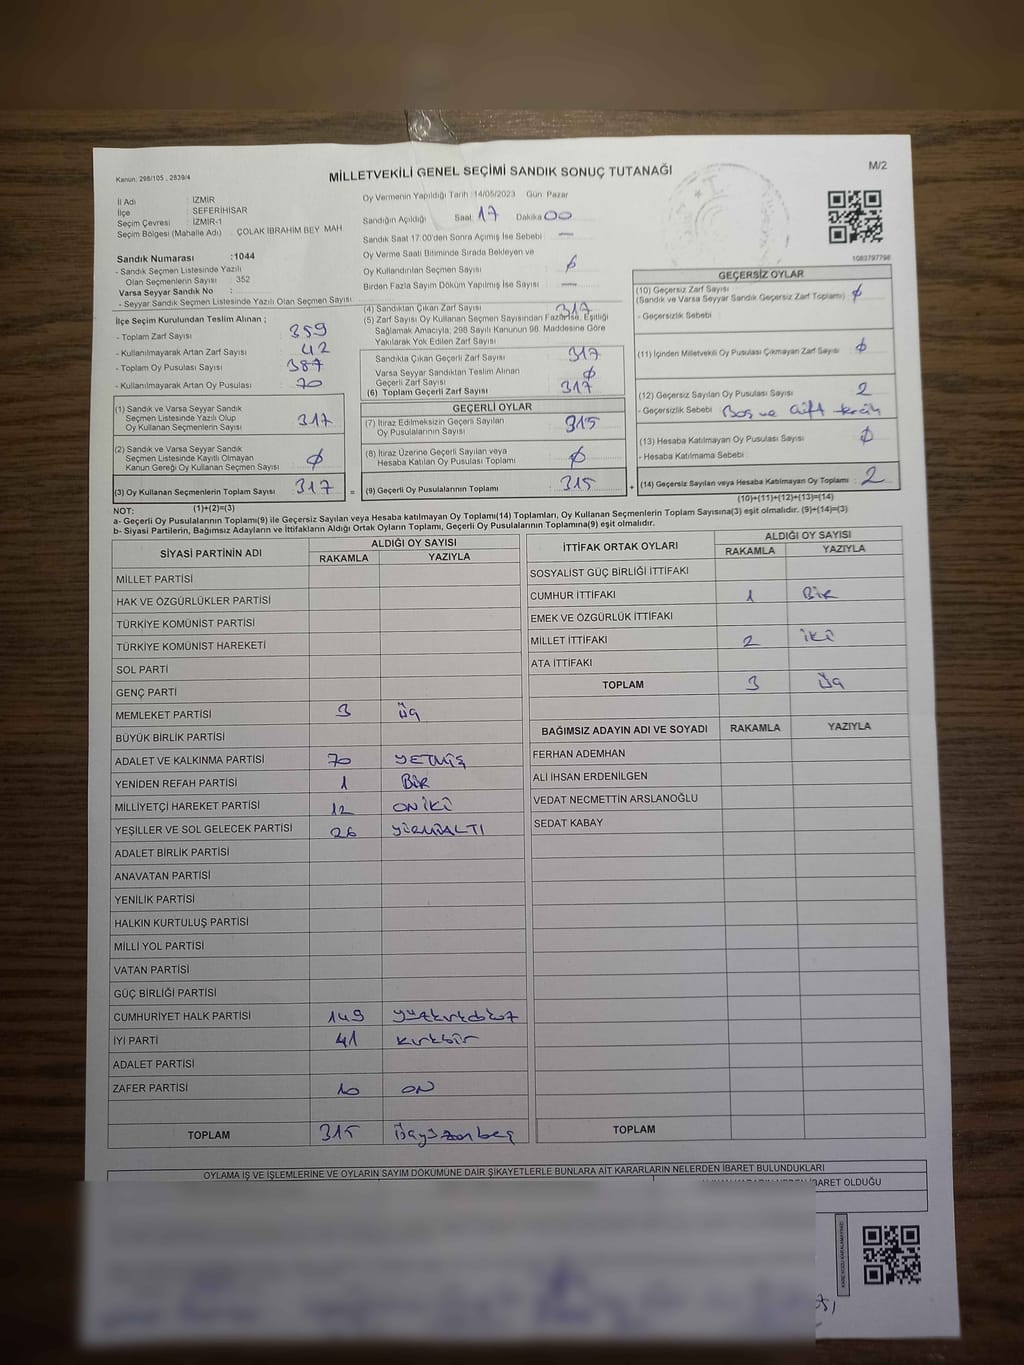 Kanun: 298/105 , 2839/4
MİLLETVEKİLİ GENEL SEÇİMİ SANDIK SONUÇ TUTANAĞI
M/2
İl Adı : İZMİR
İlçe : SEFERİHİSAR
Seçim Çevresi : İZMİR-1
Seçim Bölgesi (Mahalle Adı) : ÇOLAK İBRAHİM BEY MAH
Sandık Numarası :1044
- Sandık Seçmen Listesinde Yazılı
Olan Seçmenlerin Sayısı : 352
Varsa Seyyar Sandık No :
- Seyyar Sandık Seçmen Listesinde Yazılı Olan Seçmen Sayısı :
İlçe Seçim Kurulundan Teslim Alınan ;
- Toplam Zarf Sayısı : 359
- Kullanılmayarak Artan Zarf Sayısı : 42
- Toplam Oy Pusulası Sayısı : 387
- Kullanılmayarak Artan Oy Pusulası : 70
(1) Sandık ve Varsa Seyyar Sandık
Seçmen Listesinde Yazılı Olup
Oy Kullanan Seçmenlerin Sayısı : 317
(2) Sandık ve Varsa Seyyar Sandık
Seçmen Listesinde Kayıtlı Olmayan
Kanun Gereği Oy Kullanan Seçmen Sayısı : ∅
(3) Oy Kullanan Seçmenlerin Toplam Sayısı : 317
(1)+(2)=(3)
Oy Vermenin Yapıldığı Tarih : 14/05/2023 Gün: Pazar
Sandığın Açıldığı Saat : 17 Dakika : 00
Sandık Saat 17:00'den Sonra Açımış İse Sebebi : —
Oy Verme Saati Bitiminde Sırada Bekleyen ve
Oy Kullandırılan Seçmen Sayısı : ∅
Birden Fazla Sayım Döküm Yapılmış İse Sayısı : —
(4) Sandıktan Çıkan Zarf Sayısı : 317
(5) Zarf Sayısı Oy Kullanan Seçmen Sayısından Fazla İse, Eşitliği
Sağlamak Amacıyla, 298 Sayılı Kanunun 98. Maddesine Göre
Yakılarak Yok Edilen Zarf Sayısı :
Sandıkla Çıkan Geçerli Zarf Sayısı : 317
Varsa Seyyar Sandıktan Teslim Alınan
Geçerli Zarf Sayısı : ∅
(6) Toplam Geçerli Zarf Sayısı : 317
GEÇERLİ OYLAR
(7) İtiraz Edilmeksizin Geçerli Sayılan
Oy Pusulalarının Sayısı : 315
(8) İtiraz Üzerine Geçerli Sayılan veya
Hesaba Katılan Oy Pusulası Toplamı : ∅
= (9) Geçerli Oy Pusulalarının Toplamı : 315
1083797798
GEÇERSİZ OYLAR
(10) Geçersiz Zarf Sayısı
(Sandık ve Varsa Seyyar Sandık Geçersiz Zarf Toplamı) : ∅
- Geçersizlik Sebebi :
(11) İçinden Milletvekili Oy Pusulası Çıkmayan Zarf Sayısı : ∅
(12) Geçersiz Sayılan Oy Pusulası Sayısı : 2
- Geçersizlik Sebebi : Boş ve çift tercih
(13) Hesaba Katılmayan Oy Pusulası Sayısı : ∅
- Hesaba Katılmama Sebebi :
+ (14) Geçersiz Sayılan veya Hesaba Katılmayan Oy Toplamı : 2
(10)+(11)+(12)+(13)=(14)
NOT:
a- Geçerli Oy Pusulalarının Toplamı(9) ile Geçersiz Sayılan veya Hesaba katılmayan Oy Toplamı(14) Toplamları, Oy Kullanan Seçmenlerin Toplam Sayısına(3) eşit olmalıdır. (9)+(14)=(3)
b- Siyasi Partilerin, Bağımsız Adayların ve İttifakların Aldığı Ortak Oyların Toplamı, Geçerli Oy Pusulalarının Toplamına(9) eşit olmalıdır.
SİYASİ PARTİNİN ADI ALDIĞI OY SAYISI
RAKAMLA YAZIYLA
MİLLET PARTİSİ
HAK VE ÖZGÜRLÜKLER PARTİSİ
TÜRKİYE KOMÜNİST PARTİSİ
TÜRKİYE KOMÜNİST HAREKETİ
SOL PARTİ
GENÇ PARTİ
MEMLEKET PARTİSİ 3 üç
BÜYÜK BİRLİK PARTİSİ
ADALET VE KALKINMA PARTİSİ 70 YETMİŞ
YENİDEN REFAH PARTİSİ 1 BİR
MİLLİYETÇİ HAREKET PARTİSİ 12 ONİKİ
YEŞİLLER VE SOL GELECEK PARTİSİ 26 YİRMİALTI
ADALET BİRLİK PARTİSİ
ANAVATAN PARTİSİ
YENİLİK PARTİSİ
HALKIN KURTULUŞ PARTİSİ
MİLLİ YOL PARTİSİ
VATAN PARTİSİ
GÜÇ BİRLİĞİ PARTİSİ
CUMHURİYET HALK PARTİSİ 149 yüzkırkdokuz
İYİ PARTİ 41 kırkbir
ADALET PARTİSİ
ZAFER PARTİSİ 10 ON
TOPLAM 315 üçyüzonbeş
İTTİFAK ORTAK OYLARI ALDIĞI OY SAYISI
RAKAMLA YAZIYLA
SOSYALİST GÜÇ BİRLİĞİ İTTİFAKI
CUMHUR İTTİFAKI 1 BİR
EMEK VE ÖZGÜRLÜK İTTİFAKI
MİLLET İTTİFAKI 2 İKİ
ATA İTTİFAKI
TOPLAM 3 üç
BAĞIMSIZ ADAYIN ADI VE SOYADI RAKAMLA YAZIYLA
FERHAN ADEMHAN
ALİ İHSAN ERDENİLGEN
VEDAT NECMETTİN ARSLANOĞLU
SEDAT KABAY
TOPLAM
OYLAMA İŞ VE İŞLEMLERİNE VE OYLARIN SAYIM DÖKÜMÜNE DAİR ŞİKAYETLERLE BUNLARA AİT KARARLARIN NELERDEN İBARET BULUNDUKLARI
İBARET OLDUĞU